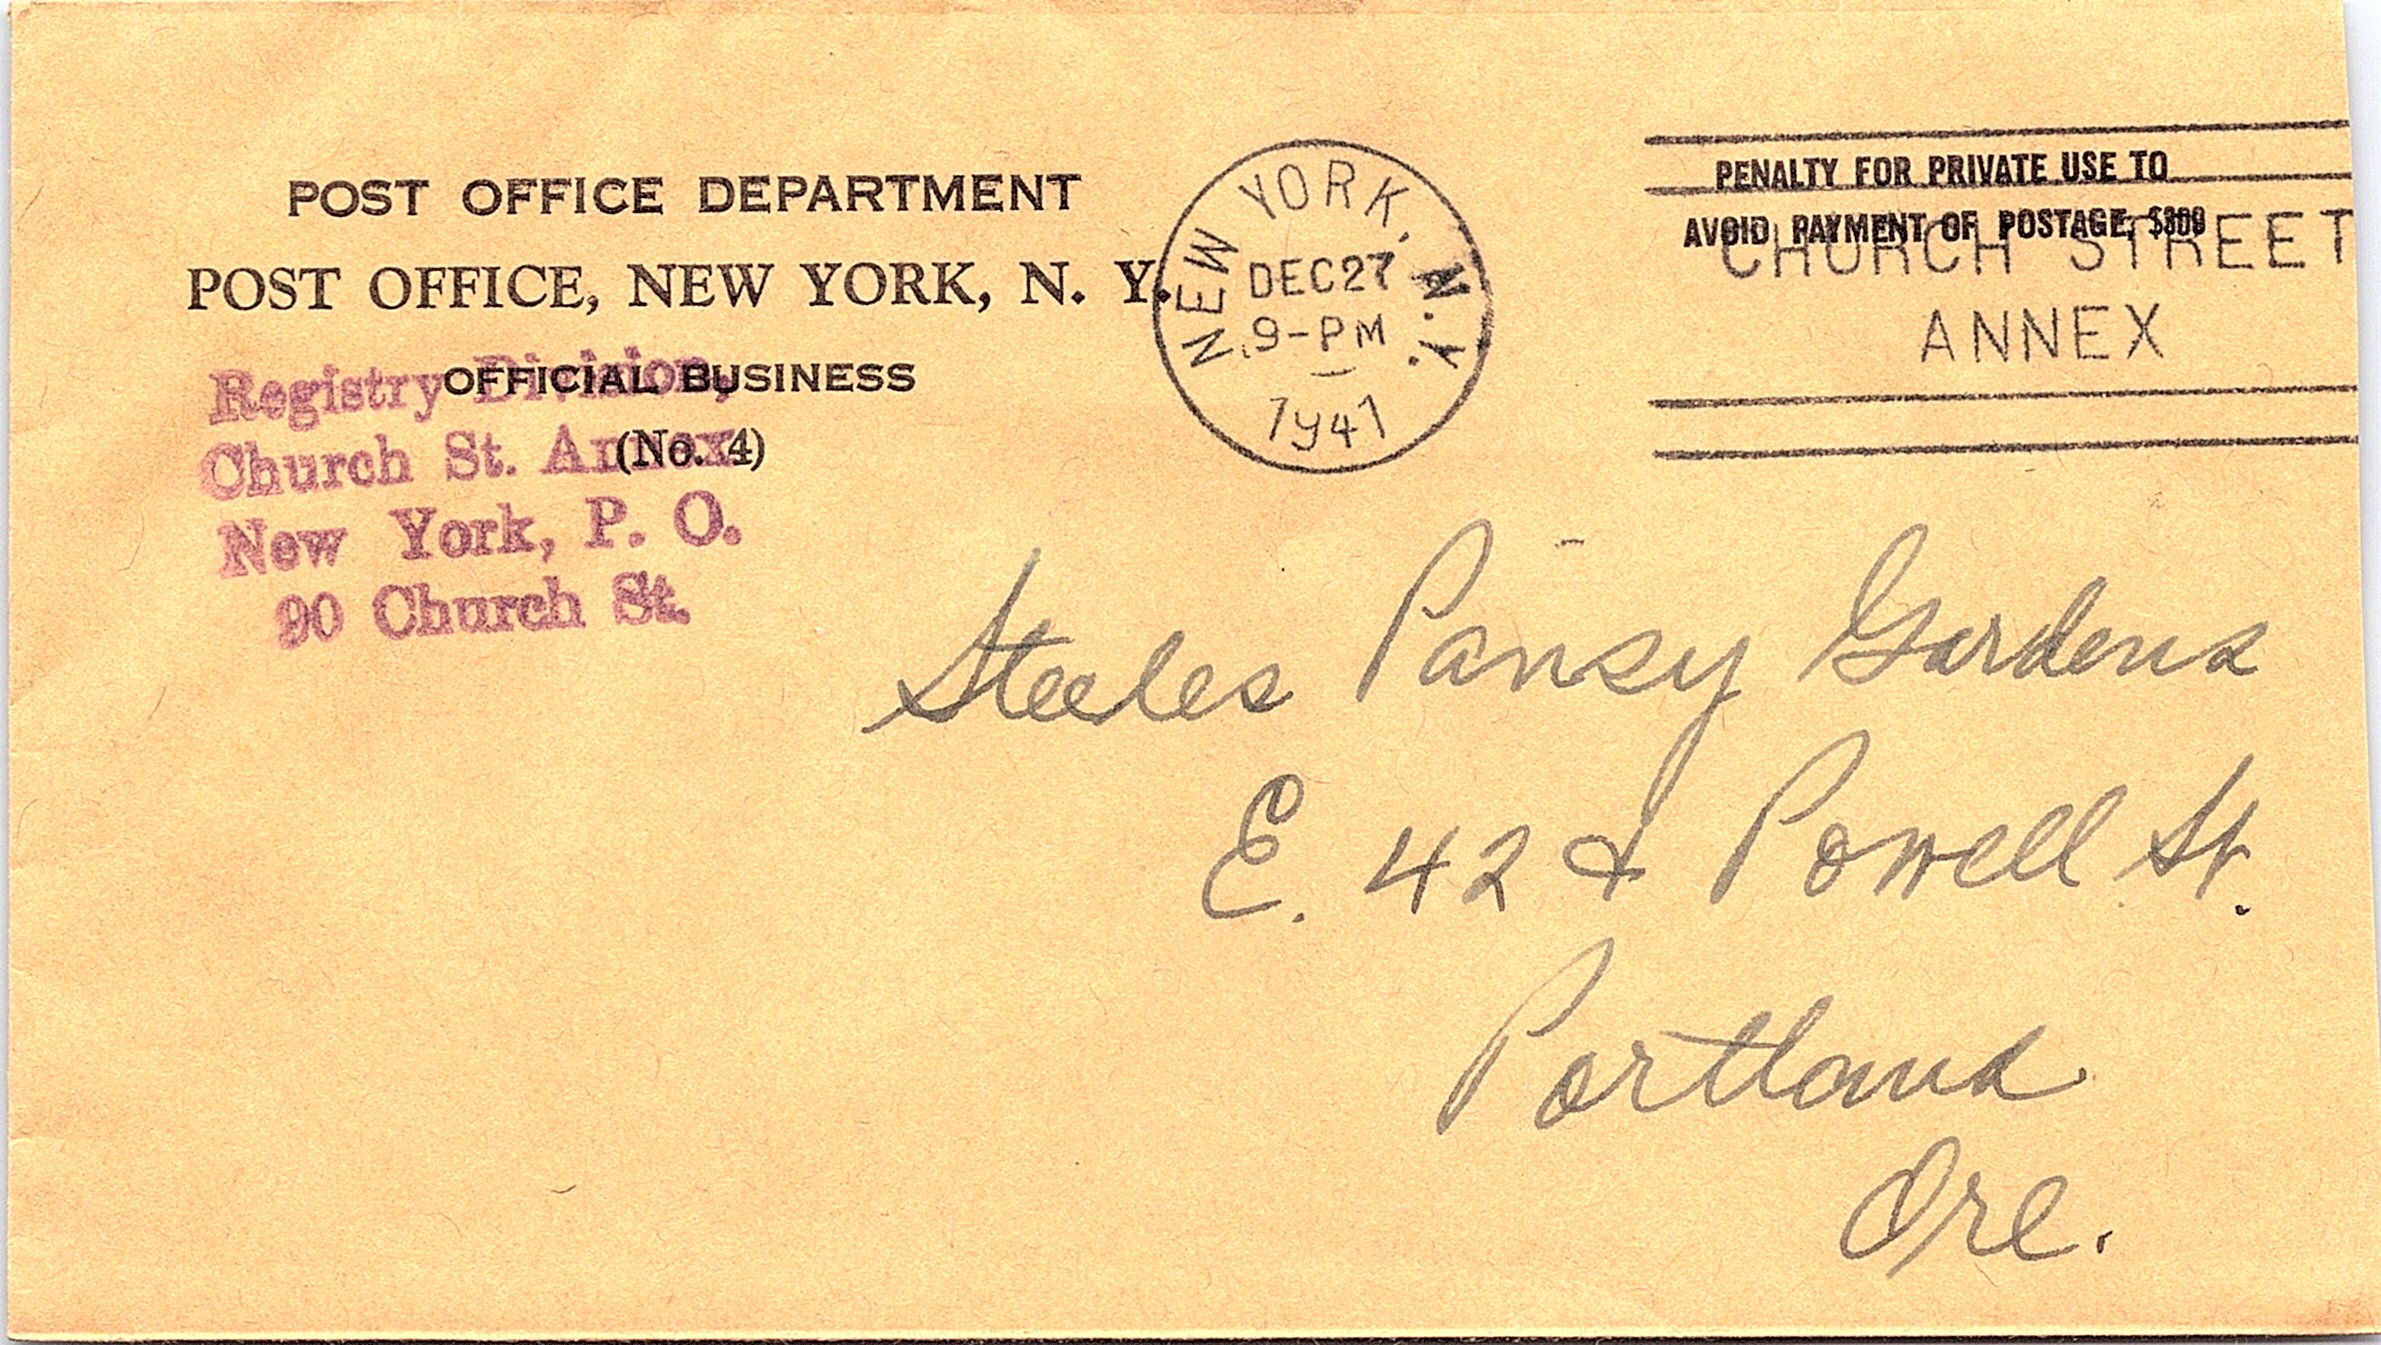 POST OFFICE DEPARTMENT
POST OFFICE, NEW YORK, N. Y.
OFFICIAL BUSINESS
(No. 4)
Registry Division,
Church St. Annex
New York, P. O.
90 Church St.
NEW YORK, N.Y.
DEC 27
9-PM
1941
PENALTY FOR PRIVATE USE TO
AVOID PAYMENT OF POSTAGE, $300
CHURCH STREET
ANNEX
Steeles Pansy Gardens
E. 42 & Powell St.
Portland
Ore.